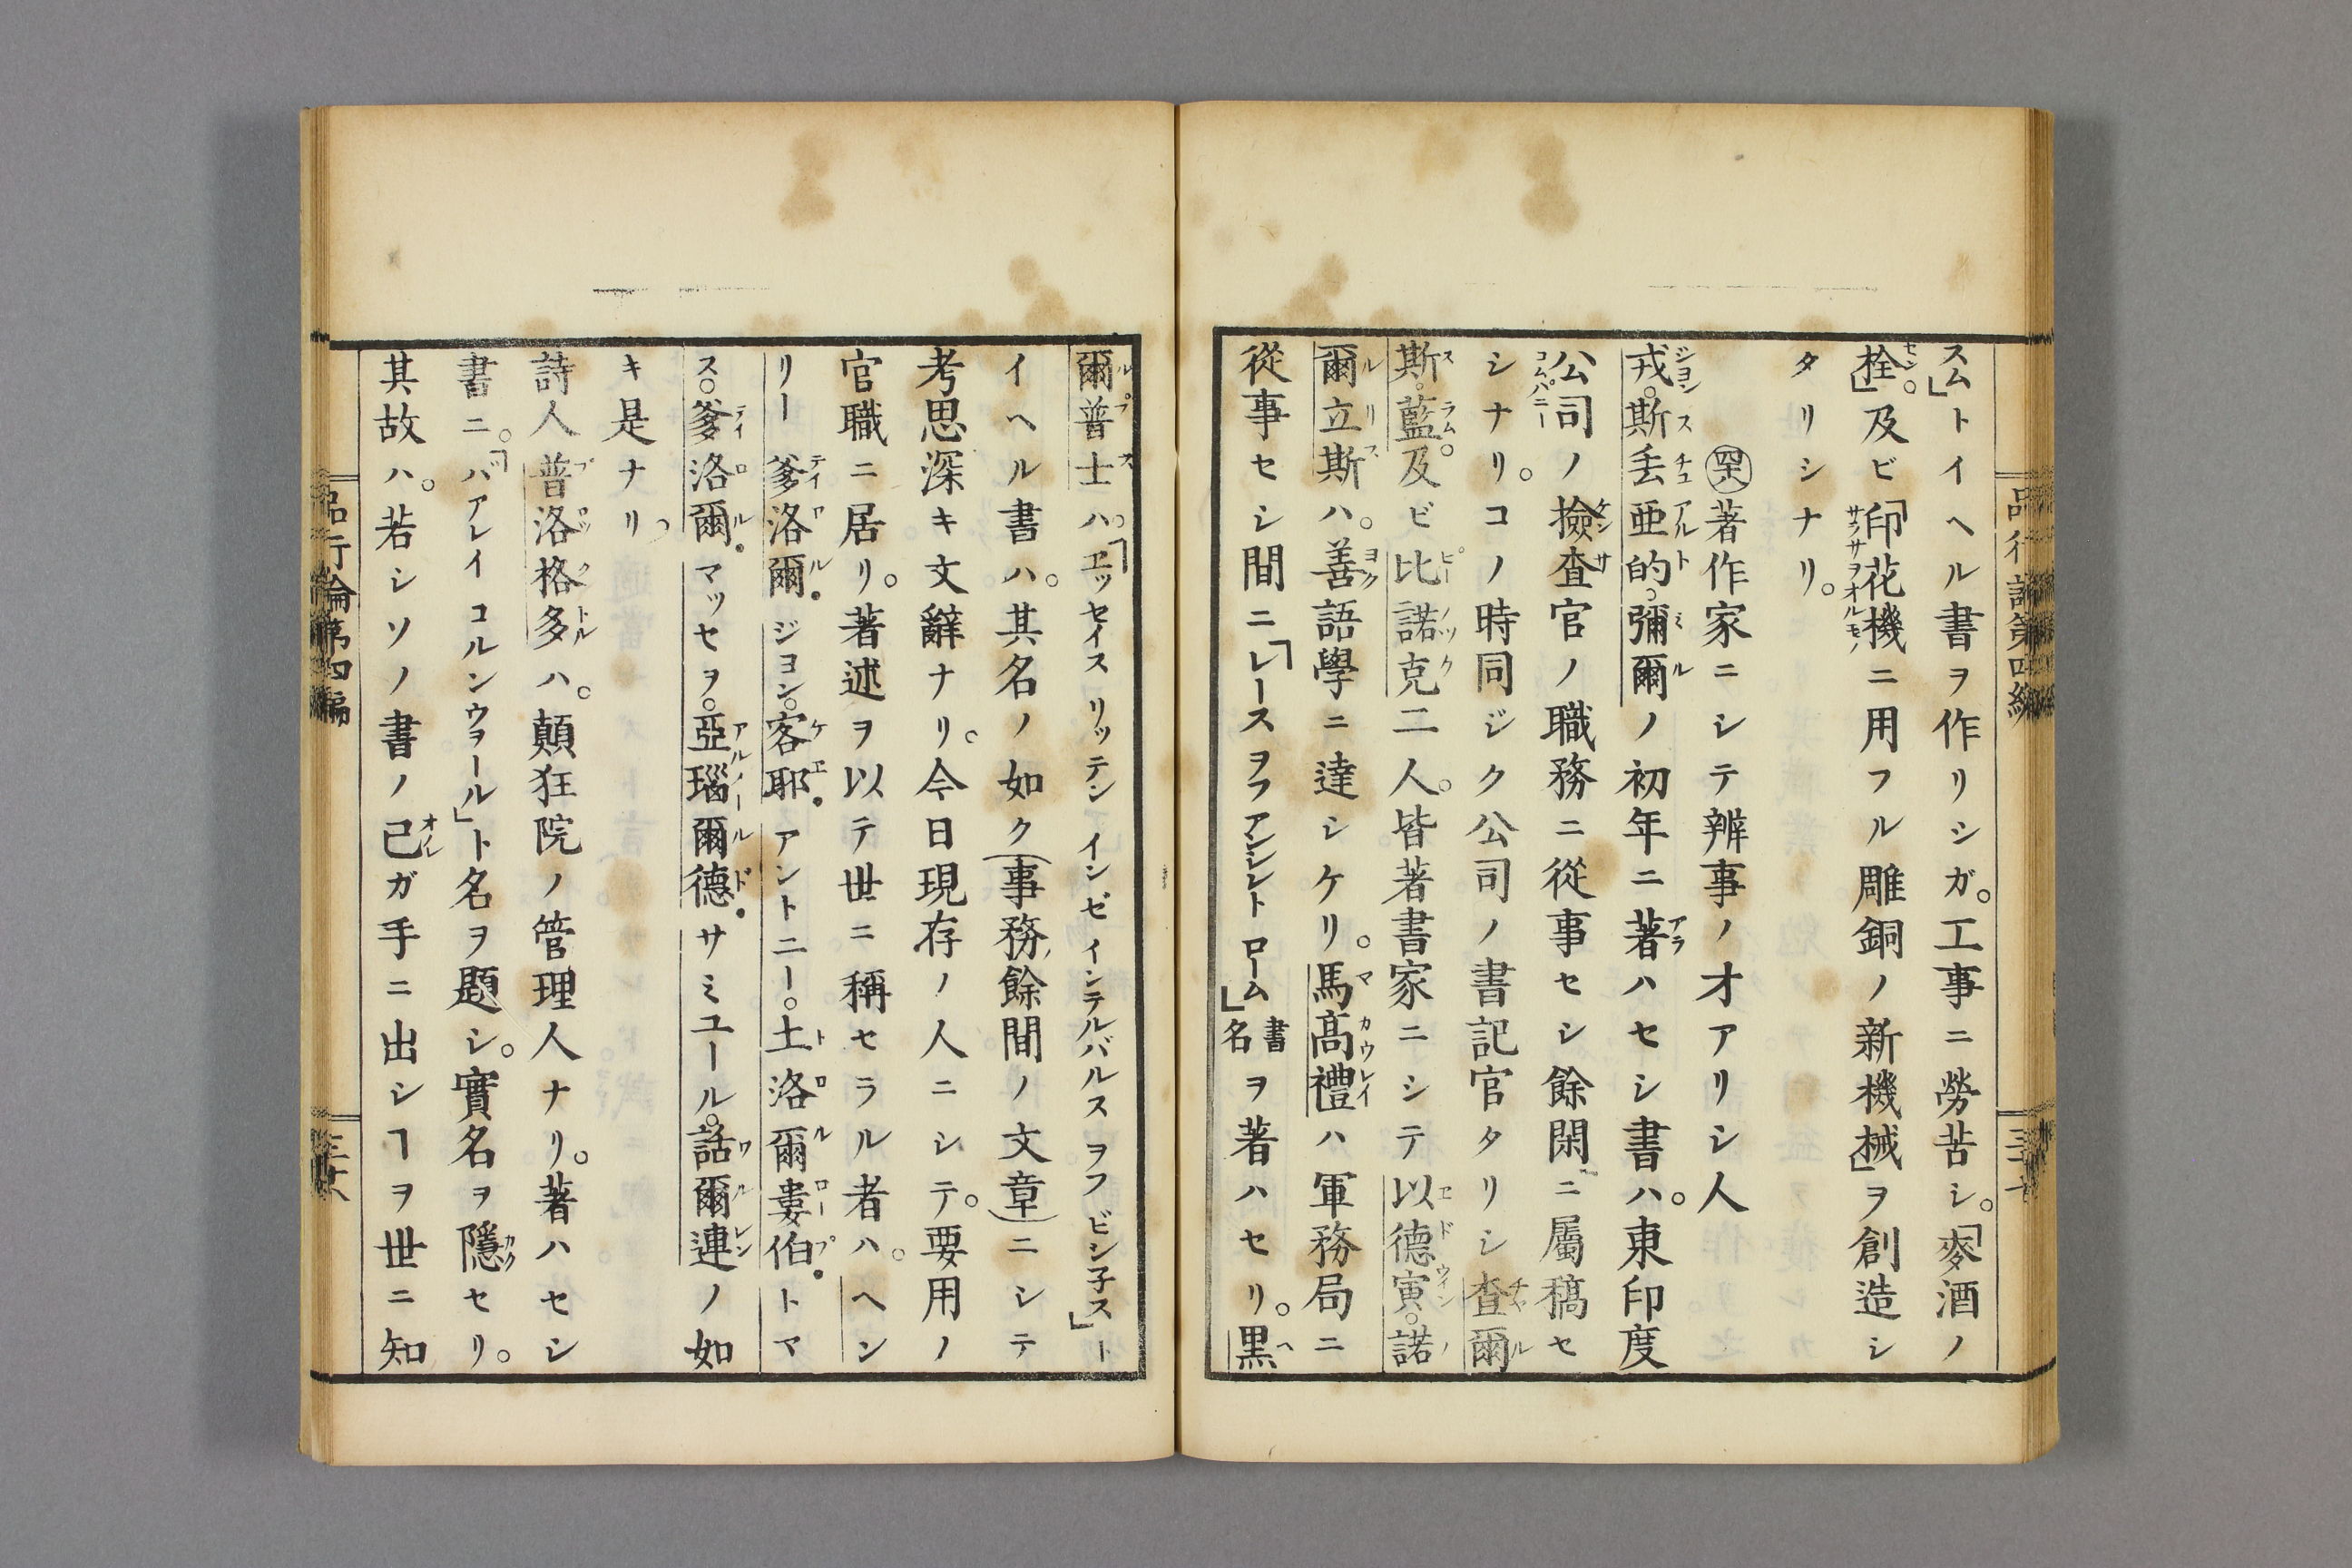 スム」トイヘル書ヲ作リシガ。工事ニ勞苦シ。「麥酒ノ
栓」及ビ「印花機ニ用フル雕銅ノ新機械」ヲ創造シ
タリシナリ。
著作家ニシテ辨事ノオアリシ人
戎。斯丢亞的。彌爾ノ初年ニ著ハセシ書ハ。東印度
公司ノ撿査官ノ職務ニ從事セシ餘閑ニ屬稿セ
シナリ。コノ時同ジク公司ノ書記官タリシ査爾
斯。藍。及ビ比諾克二人。皆著書家ニシテ以德寅。諾
爾立斯ハ。善語學ニ達シケリ。馬高禮ハ軍務局ニ
從事セシ間ニ「レースヲフアンシレントローム」書名ヲ著ハセリ。黒
爾普士ハ。「ヱッセイスリッテンインゼインテルバルスヲフビシ子ス」ト
イヘル書ハ。其名ノ如ク(事務餘間ノ文章)ニシテ
考思深キ文辭ナリ。今日現存ノ人ニシテ。要用ノ
官職ニ居リ。著述ヲ以テ世ニ稱セラル者ハ。ヘン
リー爹洛爾。ジヨン。客耶。アントニー。土洛爾婁伯。トマ
ス。爹洛爾。マッセヲ。亞瑙爾德。サミユール。話爾連ノ如
キ是ナリ。
詩人普洛格多ハ。顛狂院ノ管理人ナリ。著ハセシ
書ニ。「バアレイコルンウヲール」ト名ヲ題シ。實名ヲ隱セリ。
其故ハ。若シソノ書ノ己ガ手ニ出シヿヲ世ニ知
品行論第四編